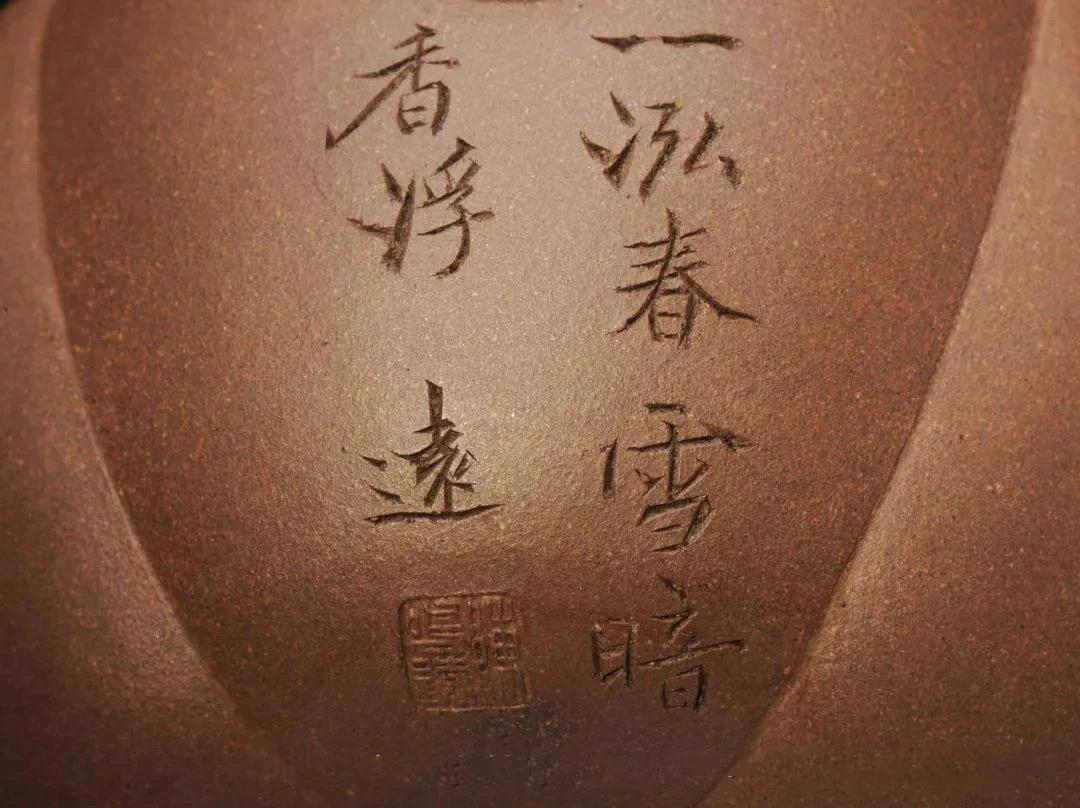 一泓春雪暗
香浮遠